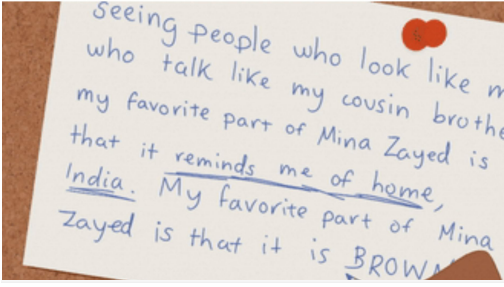 seeing people who look like m
who talk like my cousin brothe
my favorite part of Mina Zayed is
that it reminds me of home,
India. My favorite part of Mina
Zayed is that it is BROWN